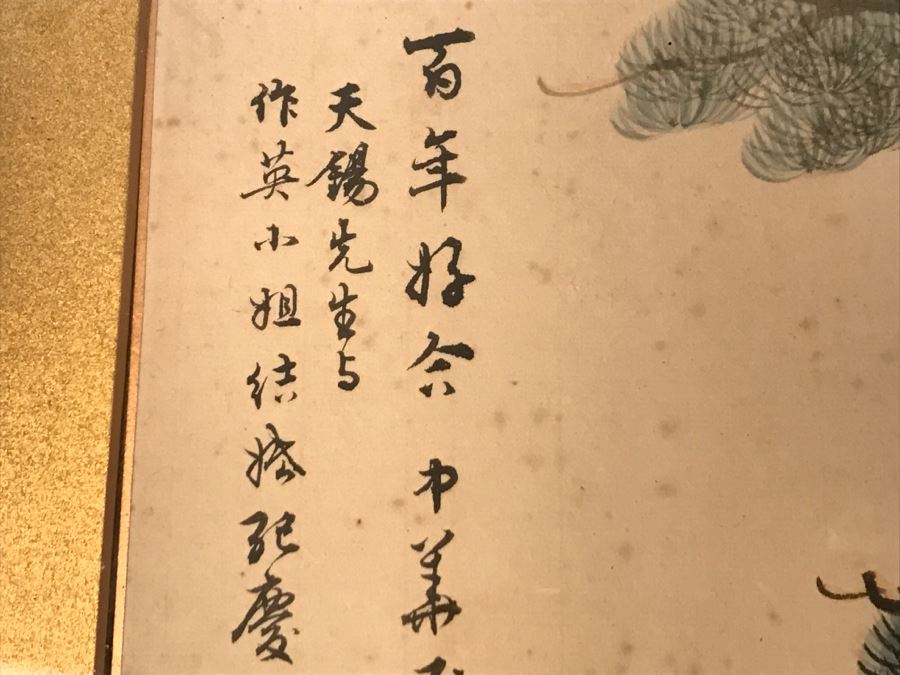 百年好合 中華
天錫先生与
作英小姐结婚紀慶